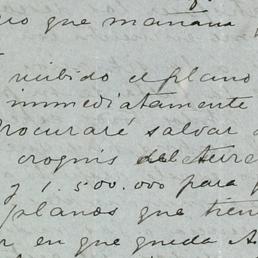 que mañana
recibido el plano
immediatamente
Procuraré salvar
croquis del Aure
y 1.500.000 para
planos que tien
en que queda